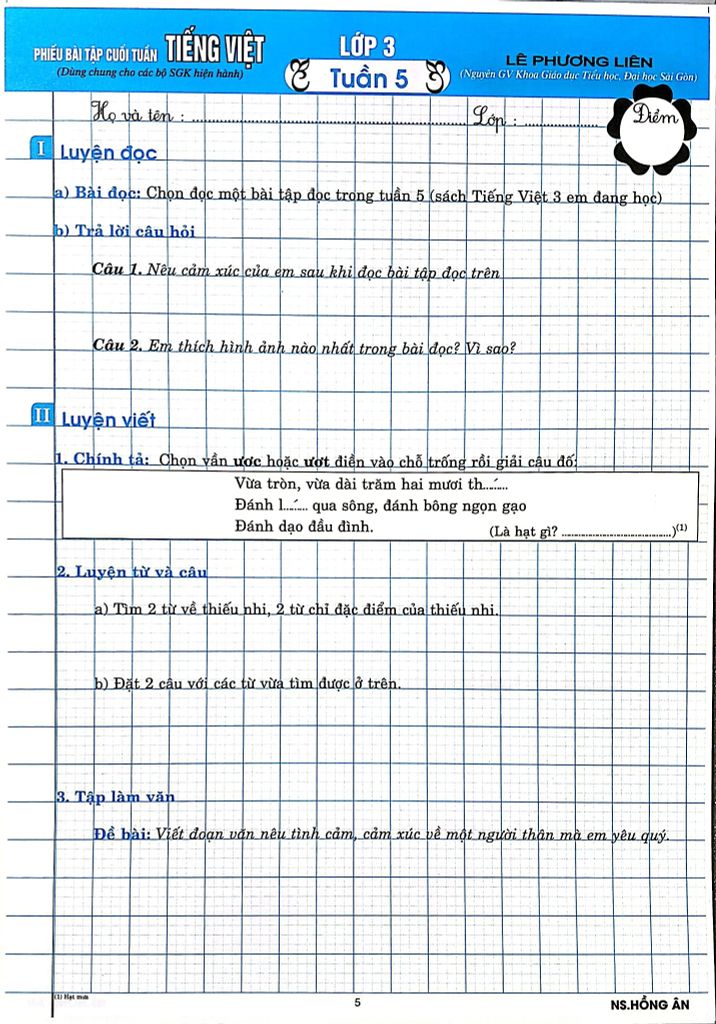 PHIẾU BÀI TẬP CUỐI TUẦN TIẾNG VIỆT
(Dùng chung cho các bộ SGK hiện hành)
LỚP 3
Tuần 5
LÊ PHƯƠNG LIÊN
(Nguyên GV Khoa Giáo dục Tiểu học, Đại học Sài Gòn)
Họ và tên : ........................ Lớp : ............
Điểm
I Luyện đọc
a) Bài đọc: Chọn đọc một bài tập đọc trong tuần 5 (sách Tiếng Việt 3 em đang học)
b) Trả lời câu hỏi
Câu 1. Nêu cảm xúc của em sau khi đọc bài tập đọc trên
Câu 2. Em thích hình ảnh nào nhất trong bài đọc? Vì sao?
II Luyện viết
1. Chính tả: Chọn vần ươc hoặc ươt điền vào chỗ trống rồi giải câu đố:
Vừa tròn, vừa dài trăm hai mươi th....́....
Đánh l....́.... qua sông, đánh bông ngọn gạo
Đánh dạo đầu đình.
(Là hạt gì? ........................)(1)
2. Luyện từ và câu
a) Tìm 2 từ về thiếu nhi, 2 từ chỉ đặc điểm của thiếu nhi.
b) Đặt 2 câu với các từ vừa tìm được ở trên.
3. Tập làm văn
Đề bài: Viết đoạn văn nêu tình cảm, cảm xúc về một người thân mà em yêu quý.
(1) Hạt mưa
5
NS.HỒNG ÂN